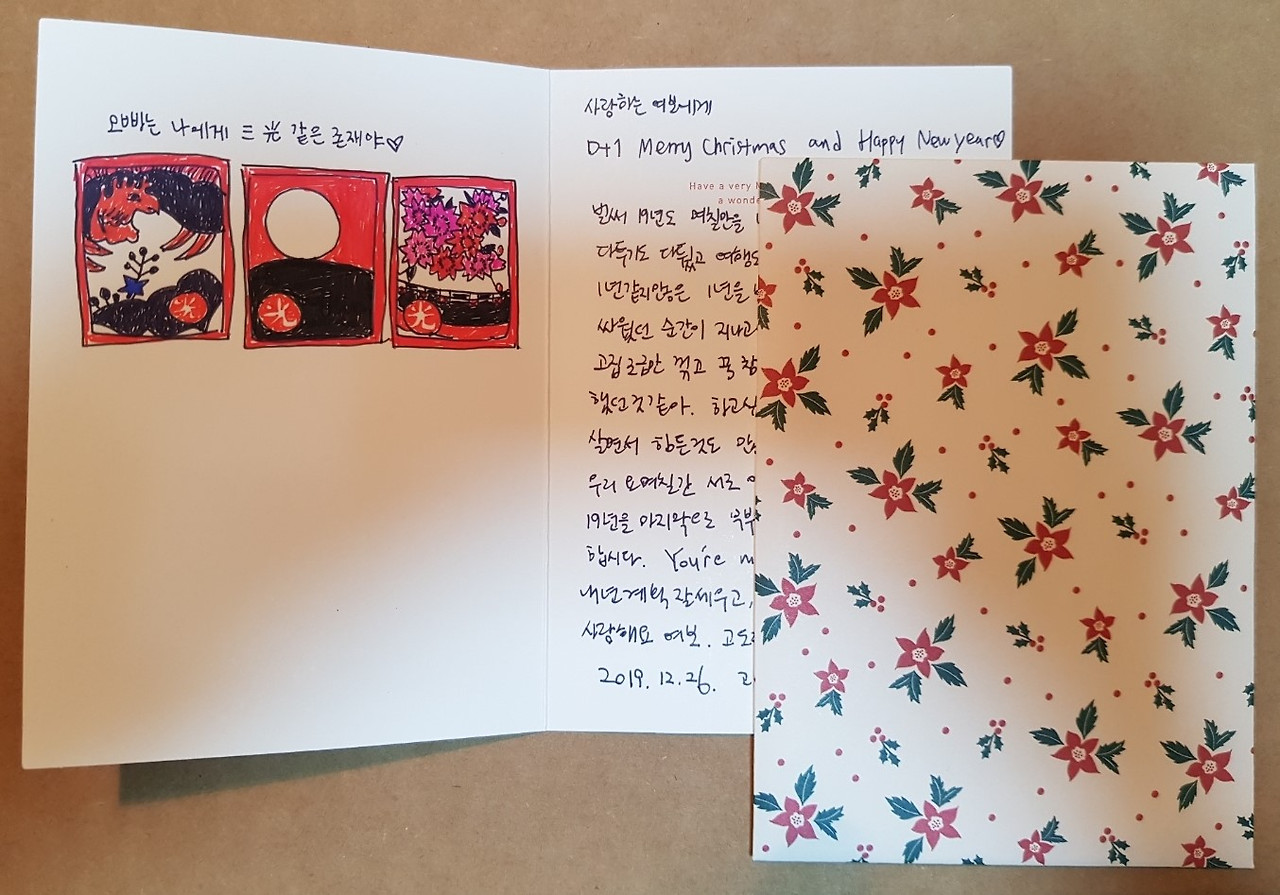 오빠는 나에게 三光 같은 존재야♡
光
光
光
사랑하는 여보에게
D+1 Merry Christmas and Happy New year♡
Have a very
a wonde
벌써 19년도 며칠안을
다투기도 다퉜고 여행도
1년같지않은 1년을
싸웠던 순간이 지나고
고집 조금만 꺾고 꼭
했던것같아. 하고
살면서 힘든것도
우리 요며칠간 서로
19년을 마지막으로
합시다. You're
내년계획 잘세우고,
사랑해요 여보.
2019.12.26.